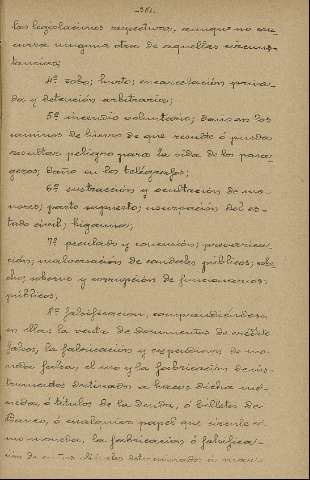 -361-
las legislaciones respectivas, aunque no con-
curra ninguna otra de aquellas circuns-
tancias;
4º robo; hurto; encarcelación priva-
da y detención arbitraria;
5º incendio voluntario; daños en los
caminos de hierro de que resulte ó pueda
resultar peligro para la vida de los pasa-
geros; daño en los telégrafos;
6º sustracción y ocultación de me-
nores; parto supuesto; usurpación del es-
tado civil; bigamia;
7º peculado y concusión; prevarica-
ción; malversación de caudales públicos; cohe-
cho; soborno y corrupción de funcionarios
públicos;
8º falsificacion, comprendiéndose
en ella: la venta de documentos de crédito
falsos, la fabricación y expendición de mo-
neda falsa, el uso y la fabricación de ins-
trumentos destinados á hacer dicha mo-
neda, ó títulos de la Deuda, ó billetes de
Banco, ó cualquier papel que circule co-
mo moneda, la fabricación ó falsifica-
ción de á